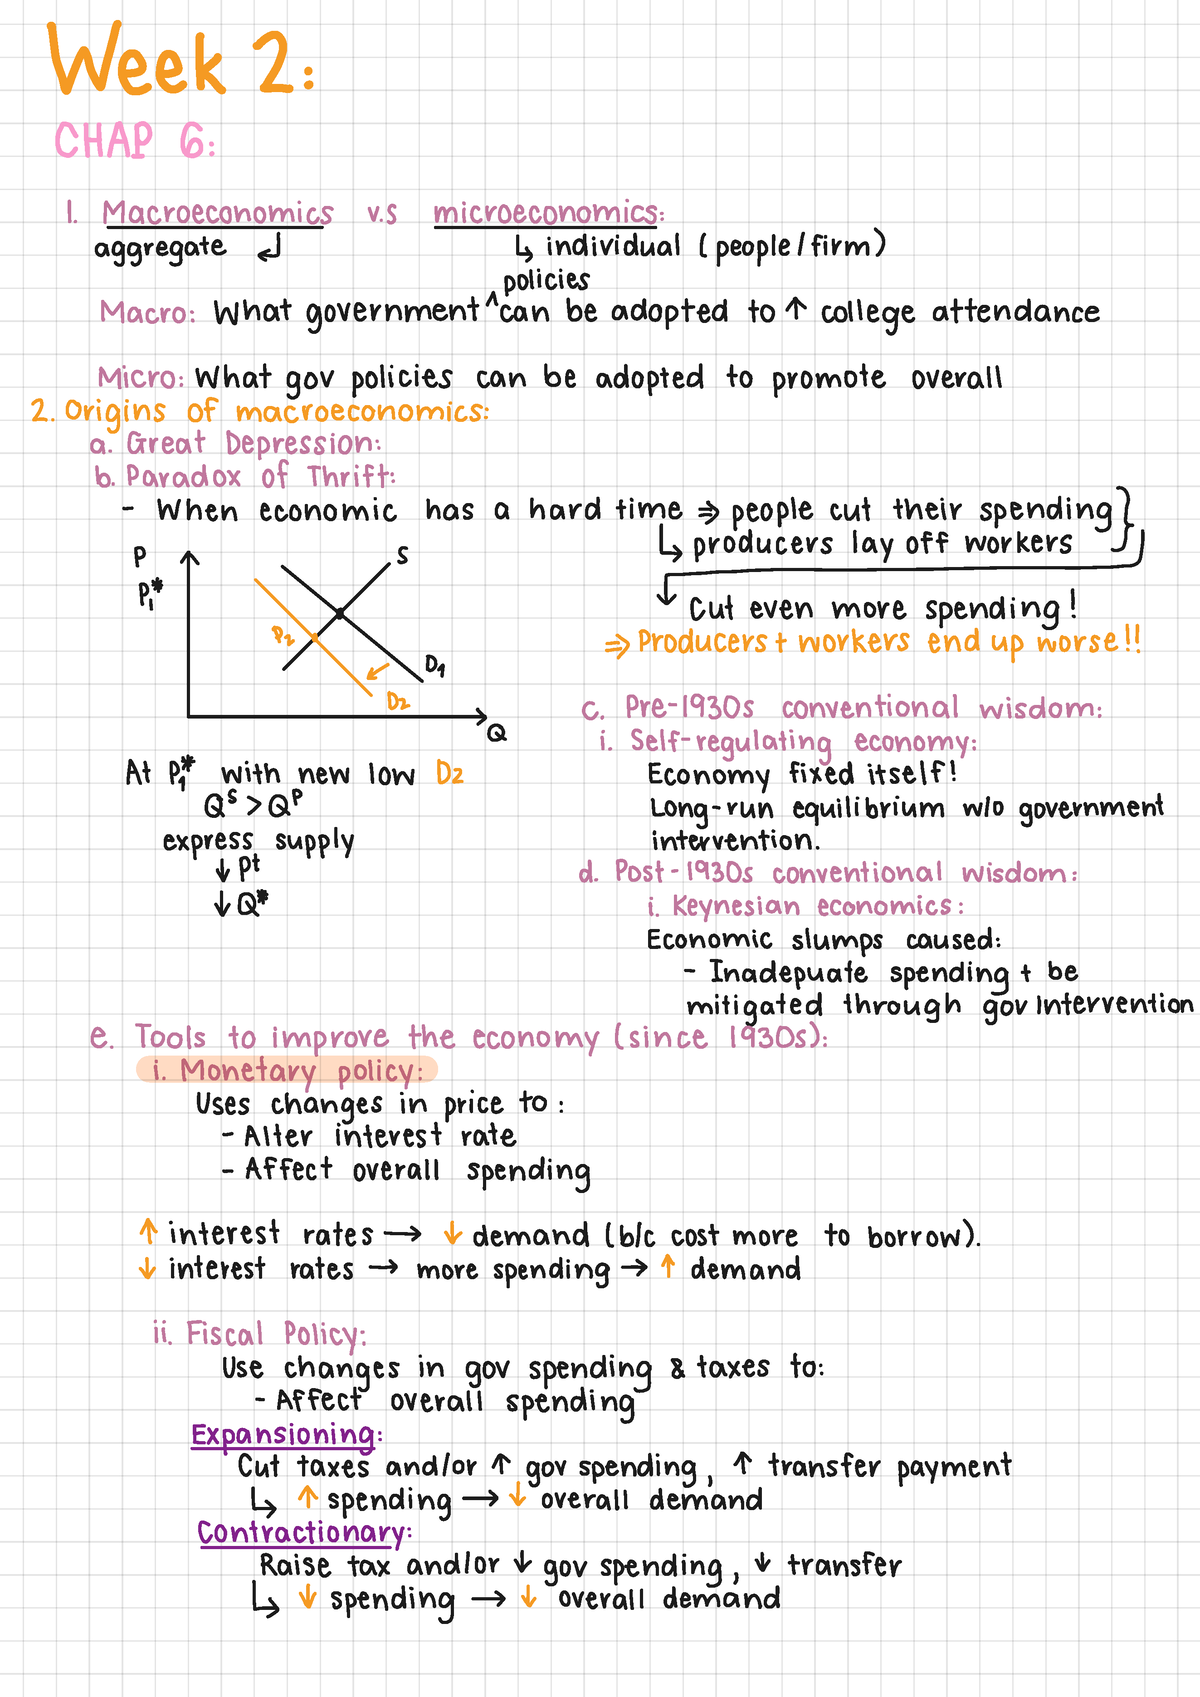 Week 2:
CHAP 6:
1. Macroeconomics v.s microeconomics:
aggregate ↲ ↳ individual (people/firm)
policies
Macro: What government ^ can be adopted to ↑ college attendance
Micro: What gov policies can be adopted to promote overall
2. Origins of macroeconomics:
a. Great Depression:
b. Paradox of Thrift:
- When economic has a hard time ⇒ people cut their spending
↳ producers lay off workers
↓ Cut even more spending!
⇒ Producers + workers end up worse!!
P
P₁*
S
P₂
D₁
D₂
Q
At P₁* with new low D₂
Qˢ > Qᴾ
express supply
↓ Pᵗ
↓ Q*
c. Pre-1930s conventional wisdom:
i. Self-regulating economy:
Economy fixed itself!
Long-run equilibrium w/o government
intervention.
d. Post-1930s conventional wisdom:
i. Keynesian economics:
Economic slumps caused:
- Inadepuate spending + be
mitigated through gov Intervention
e. Tools to improve the economy (since 1930s):
i. Monetary policy:
Uses changes in price to:
- Alter interest rate
- Affect overall spending
↑ interest rates → ↓ demand (b/c cost more to borrow).
↓ interest rates → more spending → ↑ demand
ii. Fiscal Policy:
Use changes in gov spending & taxes to:
- Affect overall spending
Expansioning:
Cut taxes and/or ↑ gov spending, ↑ transfer payment
↳ ↑ spending → ↓ overall demand
Contractionary:
Raise tax and/or ↓ gov spending, ↓ transfer
↳ ↓ spending → ↓ overall demand